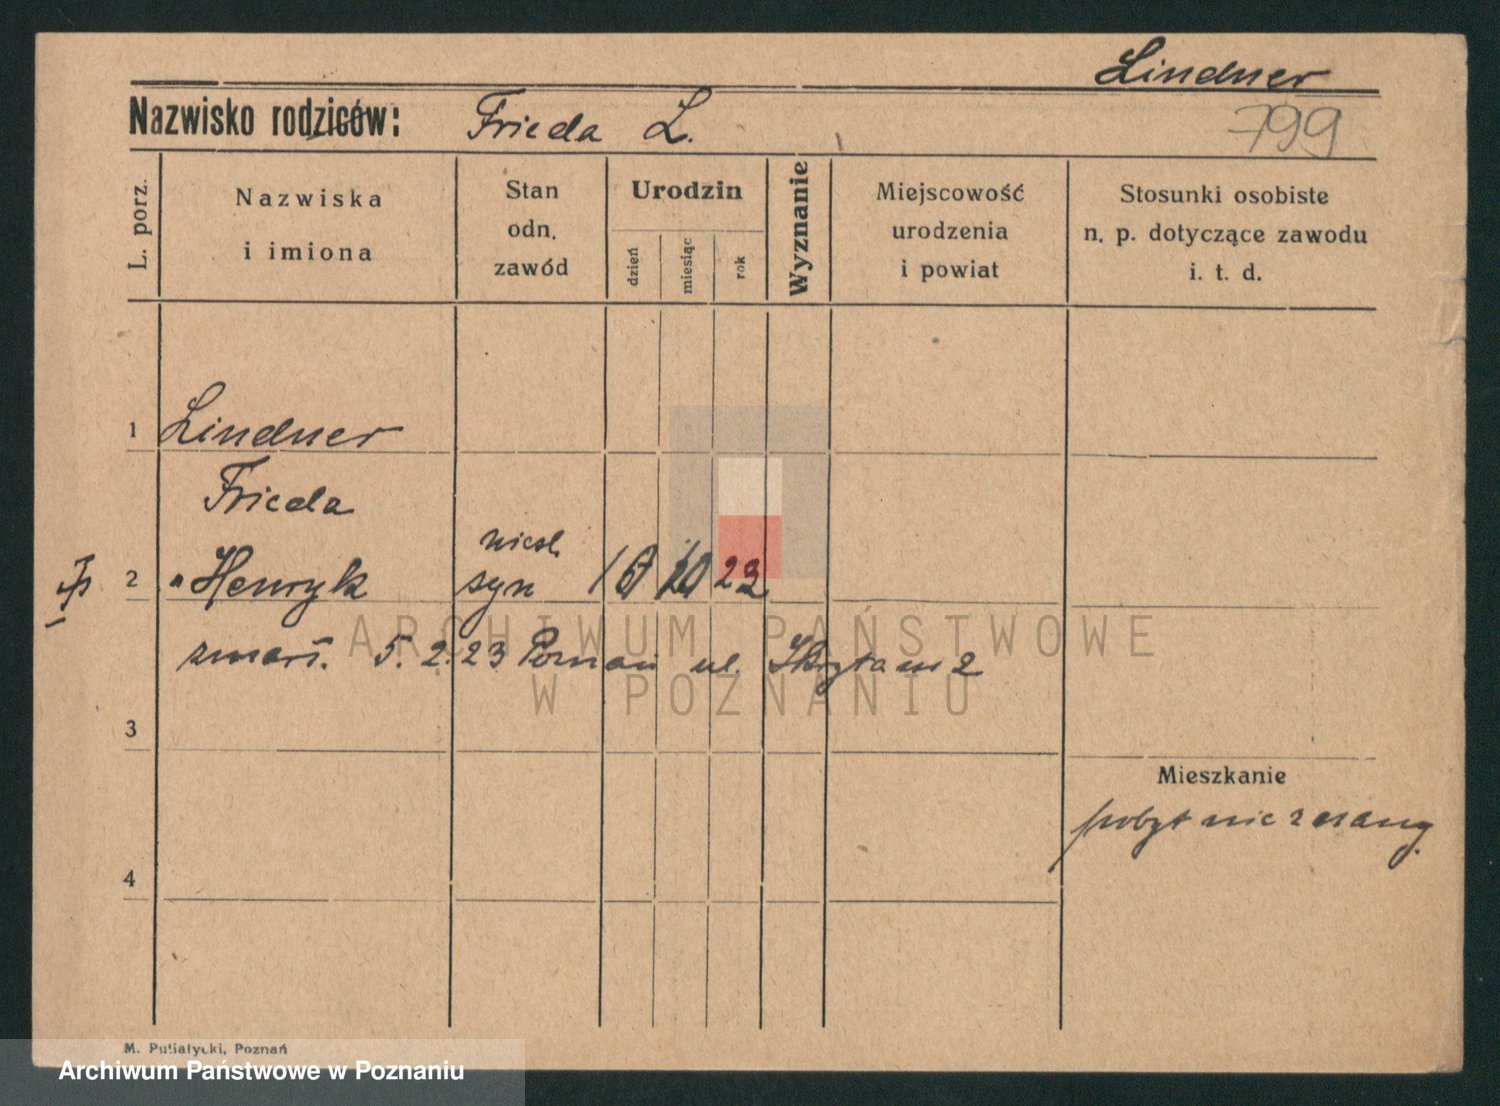 Lindner
Nazwisko rodziców: Frieda L.
799
L. porz.
Nazwiska
i imiona
Stan
odn.
zawód
Urodzin
dzień
miesiąc
rok
Wyznanie
Miejscowość
urodzenia
i powiat
Stosunki osobiste
n. p. dotyczące zawodu
i. t. d.
1 Lindner
Frieda
2 " Henryk
syn
10 23
zmarł. 5. 2. 23 Poznań ul.
3
Mieszkanie
pobyt nieznany.
4
M. Putiatycki, Poznań
ARCHIWUM PAŃSTWOWE
W POZNANIU
Archiwum Państwowe w Poznaniu